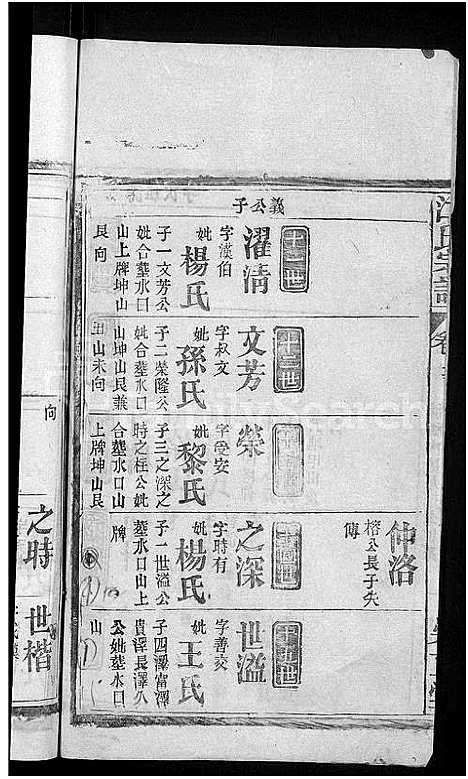 十二世
義公子
濯清
字漢伯
妣
楊氏
子一文芳公
妣合墓水口
山上牌坤山
艮向
十三世
文芳
字叔文
妣
孫氏
子二榮隆公
妣合墓水口
山坤山艮兼
丑山未向
榮
字受安
妣
黎氏
子三之深之
時之桂公妣
合墓水口山
上牌坤山艮
向
仲洛
榕公長子失
傳
之深
字時有
妣
楊氏
子一世溢公
墓水口山上
牌
十五世
世溢
字善交
妣
王氏
子四澤富澤
貴澤長澤久
公妣墓水口
山
之時
世楷